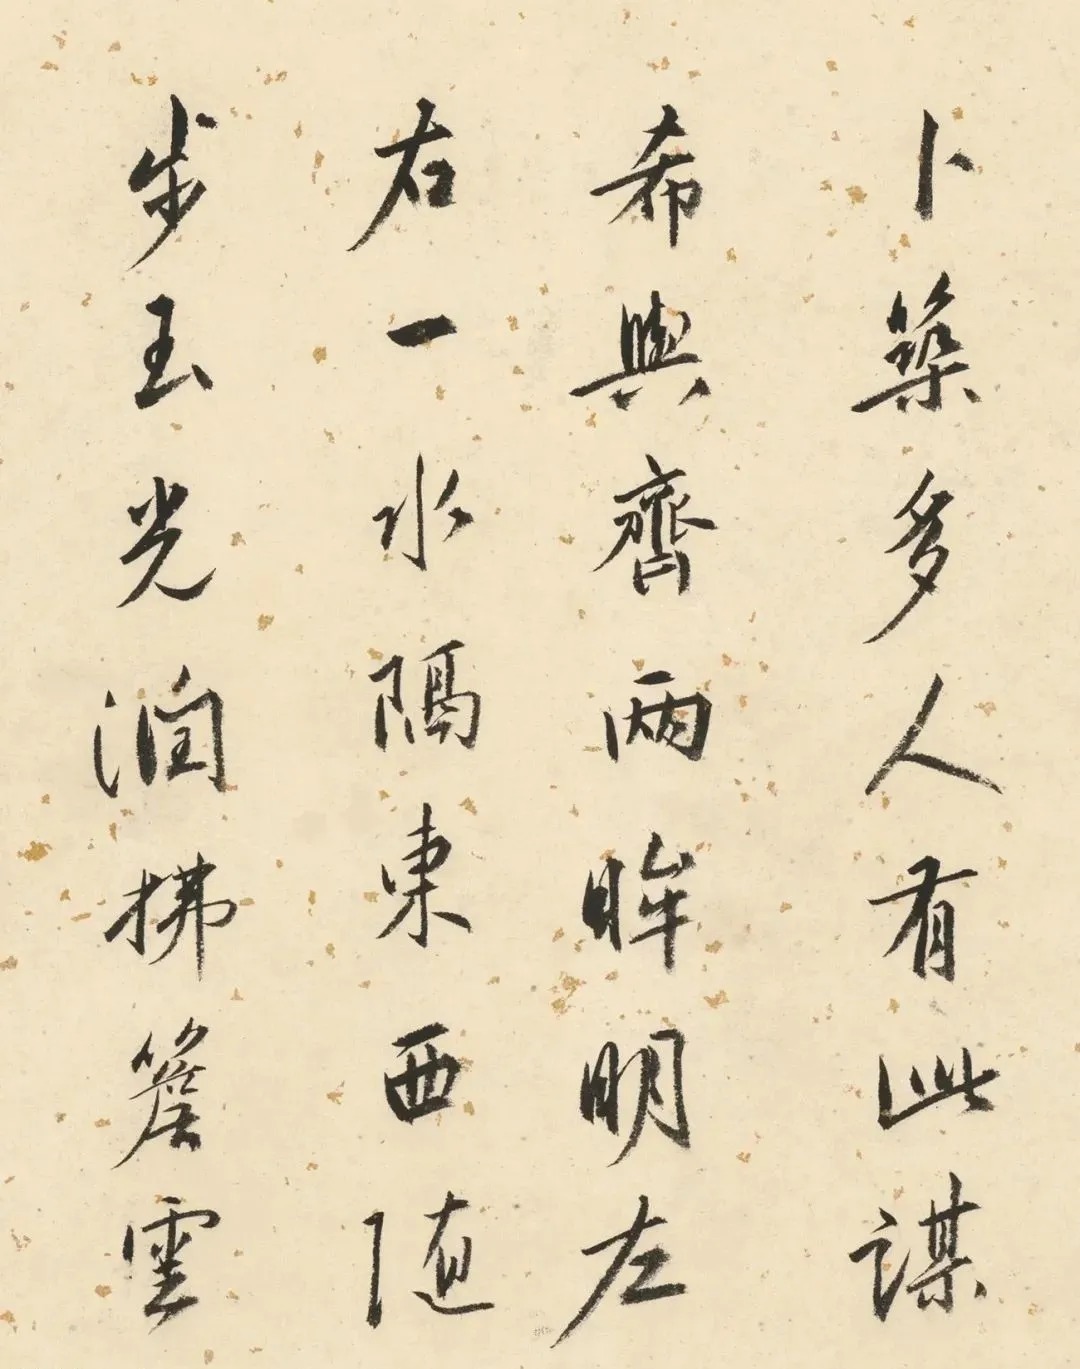 卜築多人有此謀
希與齊兩眸明左
右一水隔東西隨
步玉光潤拂簷雲